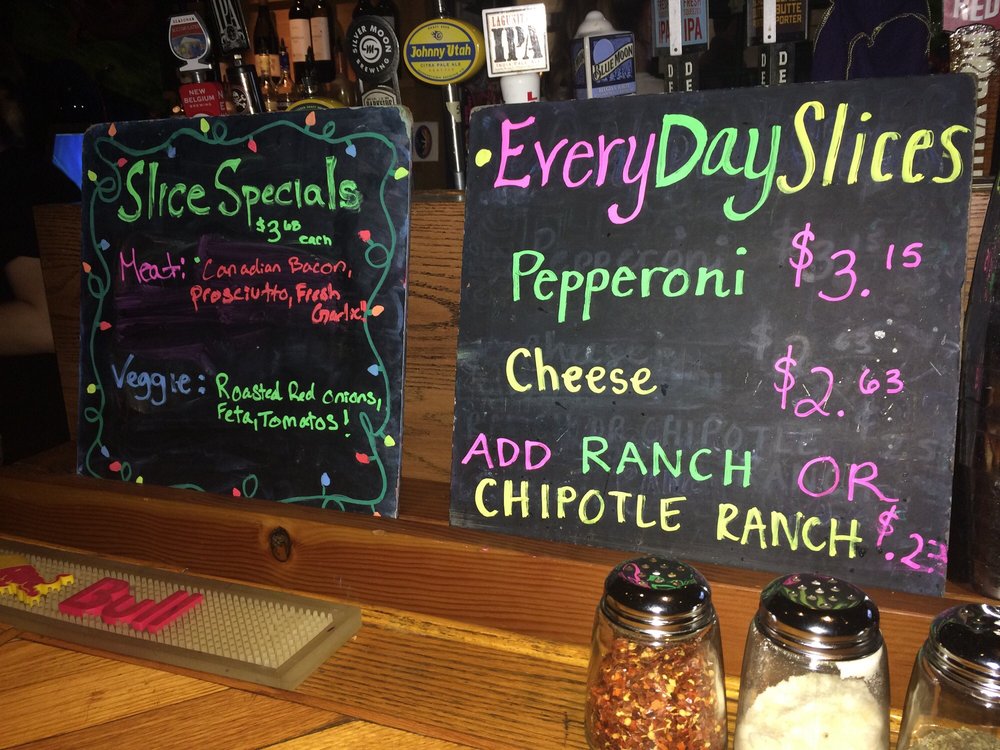 Slice Specials
$3.68 each
Meat: Canadian Bacon,
Prosciutto, Fresh
Garlic!
Veggie: Roasted Red onions,
Feta, Tomatos!
EveryDaySlices
Pepperoni $3.15
Cheese $2.63
ADD RANCH OR
CHIPOTLE RANCH $.27
NEW BELGIUM
BREWING
SILVER MOON
BREWING
Johnny Utah
CITRA PALE ALE
LAGUNITAS
IPA
BLUE MOON
FRESH
IPA
BUTTE
PORTER
RED
Bull